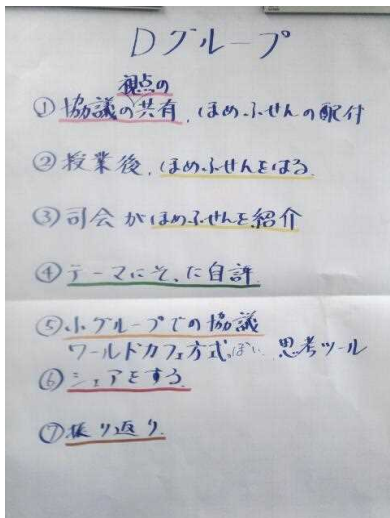 Dグループ
視点の
①協議の共有、ほめふせんの配付
②授業後、ほめふせんをはる
③司会がほめふせんを紹介
④テーマにそった自評
⑤小グループでの協議
ワールドカフェ方式っぽい 思考ツール
⑥シェアをする
⑦振り返り